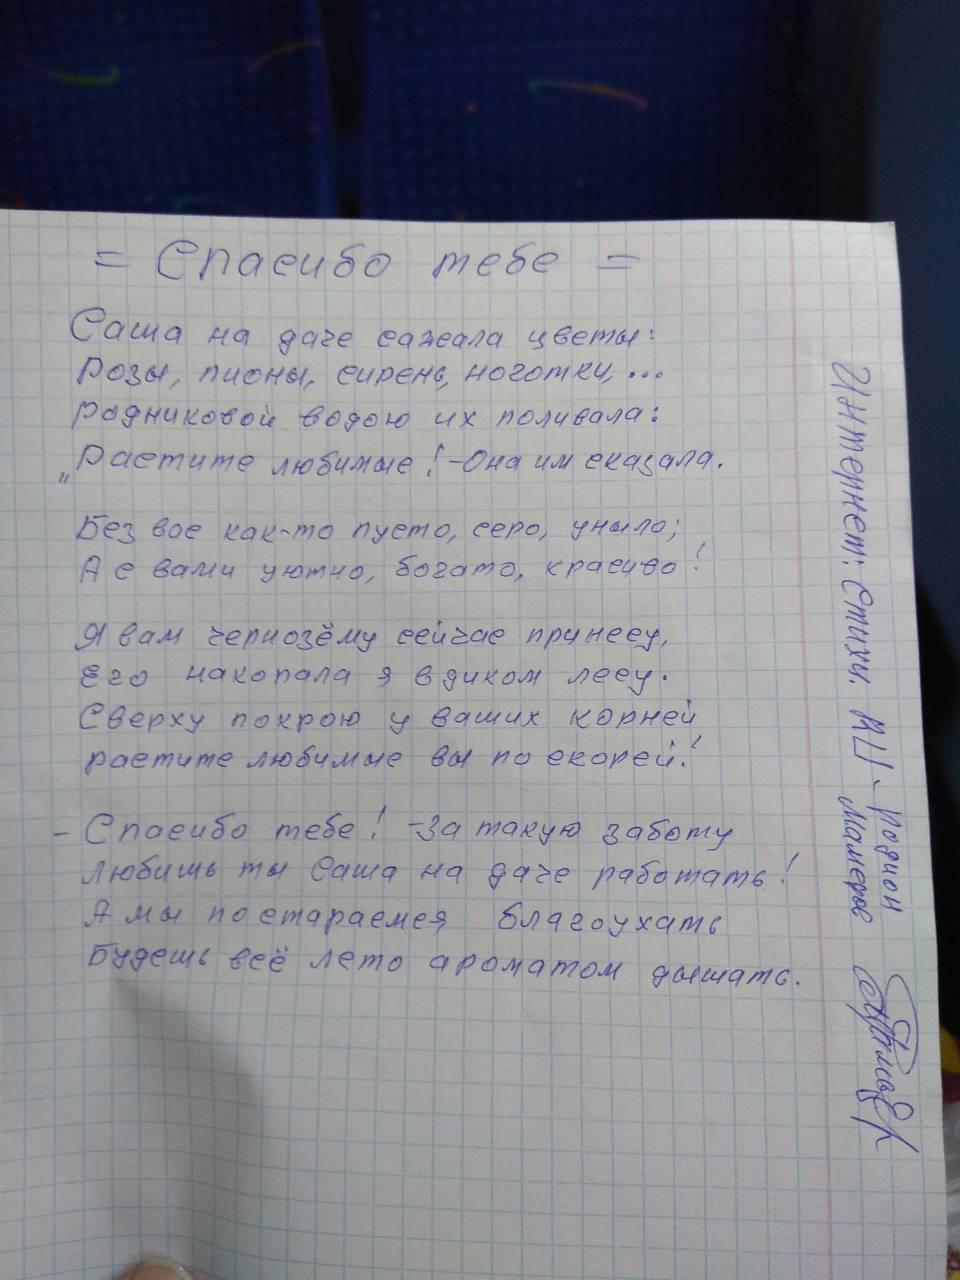 = Спасибо тебе =
Саша на даче сажала цветы:
Розы, пионы, сирень, ноготки,...
родниковой водою их поливала:
„Растите любимые! -Она им сказала.
Без вас как-то пусто, серо, уныло;
А с вами уютно, богато, красиво!
Я вам чернозёму сейчас принесу,
Его накопала я в диком лесу.
Сверху покрою у ваших корней
растите любимые вы по скорей!
- Спасибо тебе! -За такую заботу
Любишь ты Саша на даче работать!
А мы постараемся благоухать
Будешь всё лето ароматом дышать.
Интернет: Стихи. RU - Родион
Мамеров